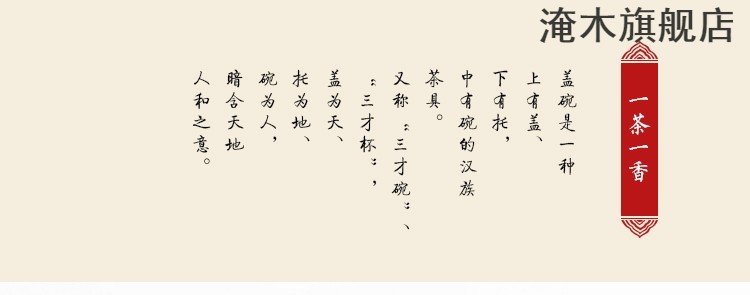 淹木旗舰店
一茶一香
盖碗是一种
上有盖、
下有托，
中有碗的汉族
茶具。
又称“三才碗”、
“三才杯”，
盖为天、
托为地、
碗为人，
暗含天地
人和之意。